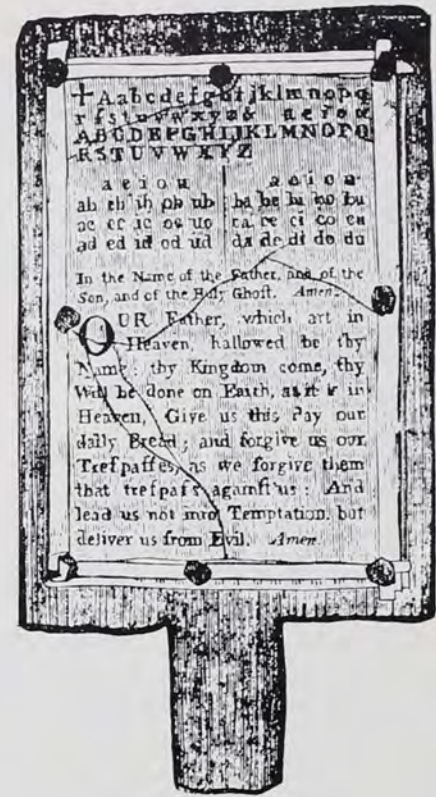 +Aabcdefghijklmnopq
rſstuvwxyz& aeiou
ABCDEFGHIJKLMNOPQ
RSTUVWXYZ
a e i o u a e i o u
ab eb ib ob ub ba be bi bo bu
ac ec ic oc uc ca ce ci co cu
ad ed id od ud da de di do du
In the Name of the Father, and of the
Son, and of the Holy Ghoſt. Amen.
OUR Father, which art in
Heaven, hallowed be thy
Name; thy Kingdom come, thy
Will be done on Earth, as it is in
Heaven, Give us this Day our
daily Bread; and forgive us our
Treſpaſſes, as we forgive them
that treſpaſs againſt us: And
lead us not into Temptation, but
deliver us from Evil. Amen.